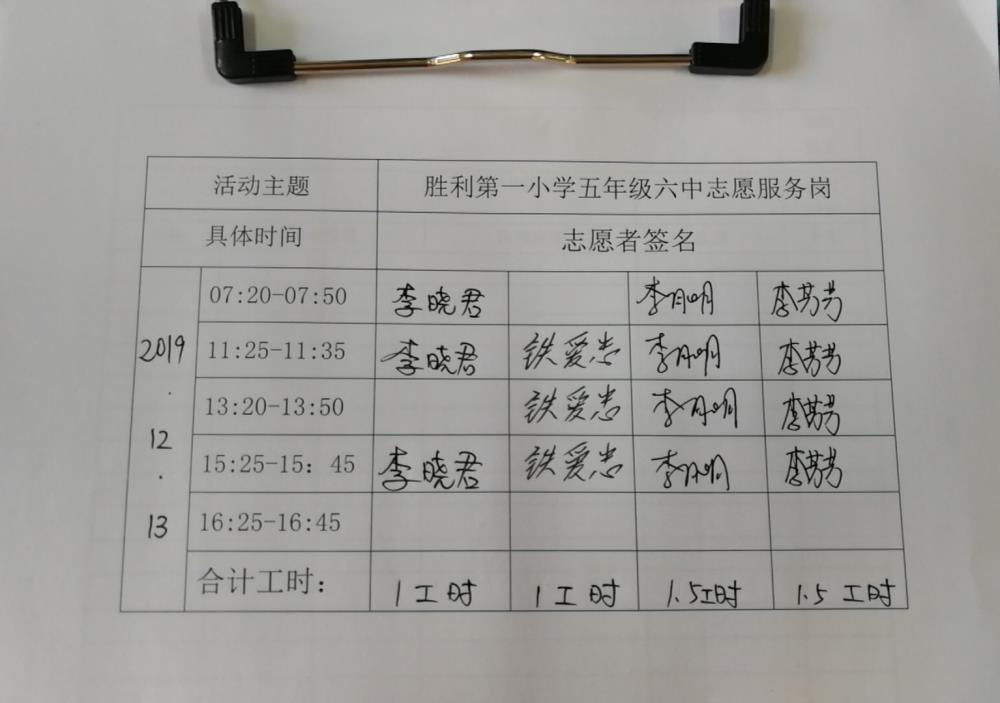 活动主题 胜利第一小学五年级六中志愿服务岗
具体时间 志愿者签名
2019.12.13
07:20-07:50 李晓君 李月明 李芳芳
11:25-11:35 李晓君 铁爱忠 李月明 李芳芳
13:20-13:50 铁爱忠 李月明 李芳芳
15:25-15：45 李晓君 铁爱忠 李月明 李芳芳
16:25-16:45
合计工时： 1工时 1工时 1.5工时 1.5工时